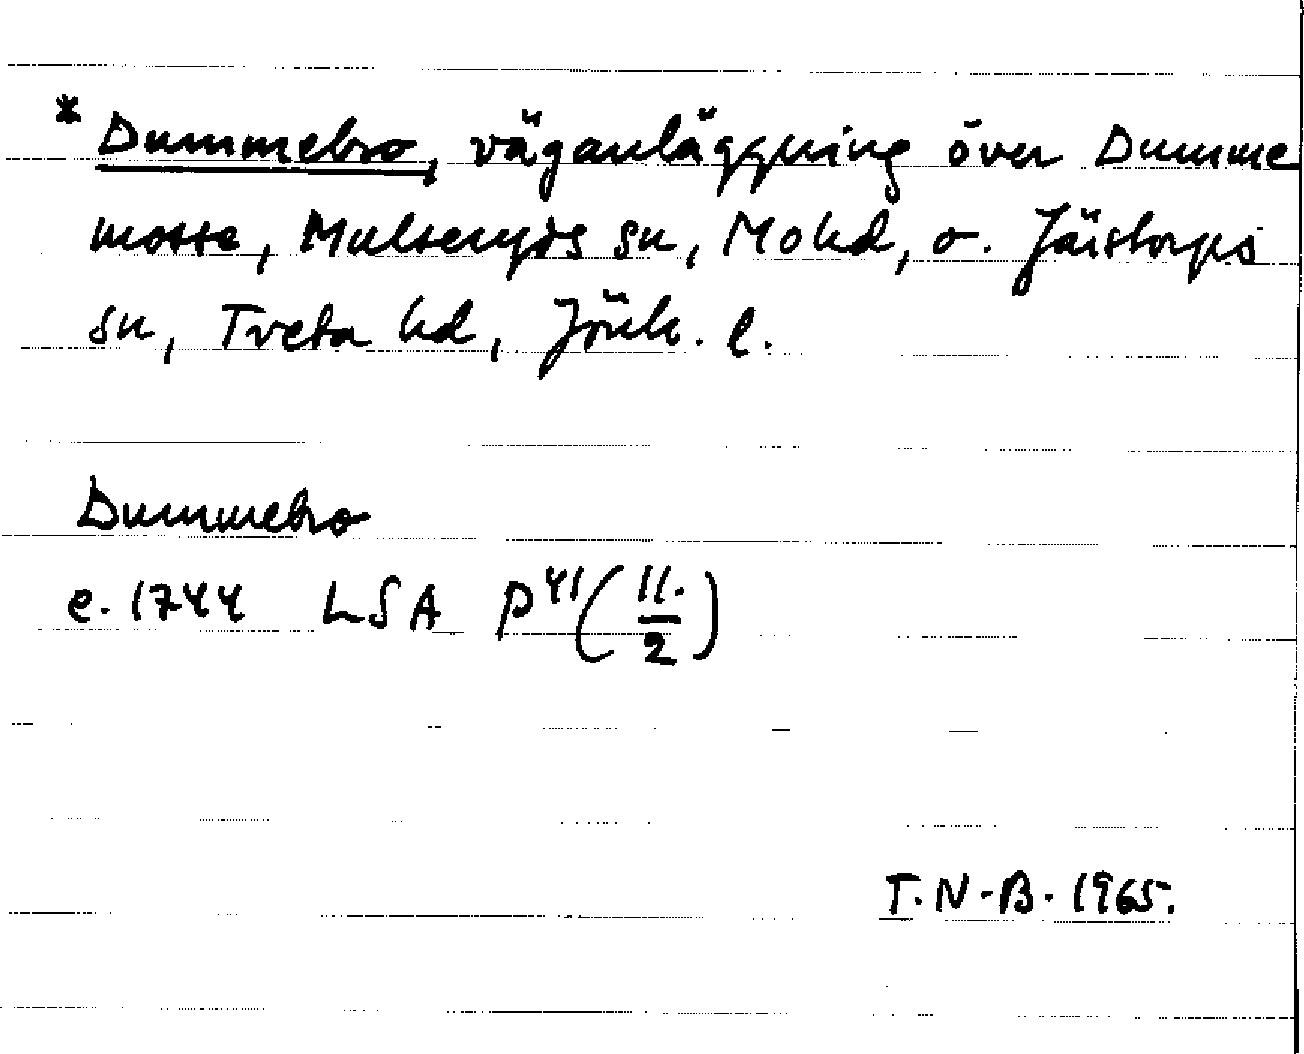 * Dummebro, väganläggning över Dumme
mosse, Mulseryds sn, Mo hd, o. Järstorps
sn, Tveta hd, Jönk. l.
Dummebro
e. 1744 LSA P 41 (11./2)
T. N-B. 1965.